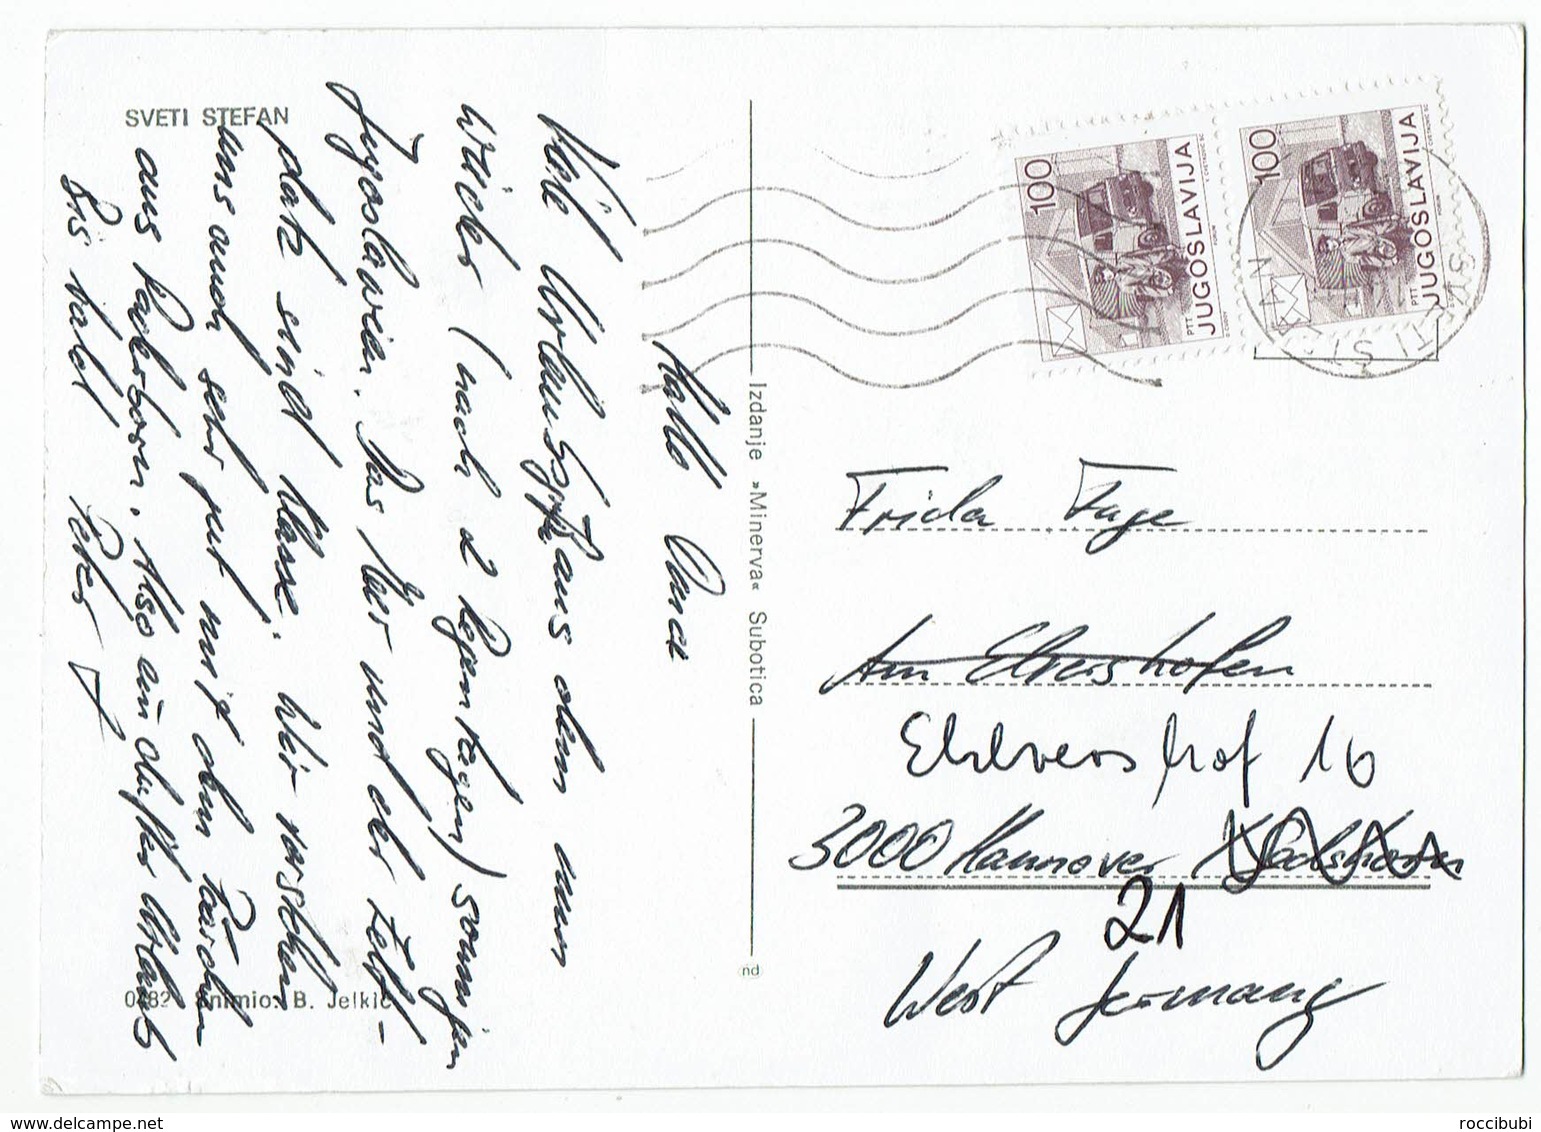 SVETI STEFAN
Hallo Oma
Viele Urlaubsgrüße aus dem nun
wieder (nach 2 Regentagen) sonnigen
Jugoslawien. Das Meer und der Zelt-
platz sind klasse. Wir verstehen
uns auch sehr gut mit dem Pärchen
aus Paderborn. Also ein dufter Urlaub
Bis bald Peter
0482 Snimio: B. Jelkić
Izdanje »Minerva« Subotica
nd
100
PTT JUGOSLAVIJA
100
PTT JUGOSLAVIJA
Frida Fuge
Am Elvershofen
3000 Hannover
21
West Germany
roccibubi